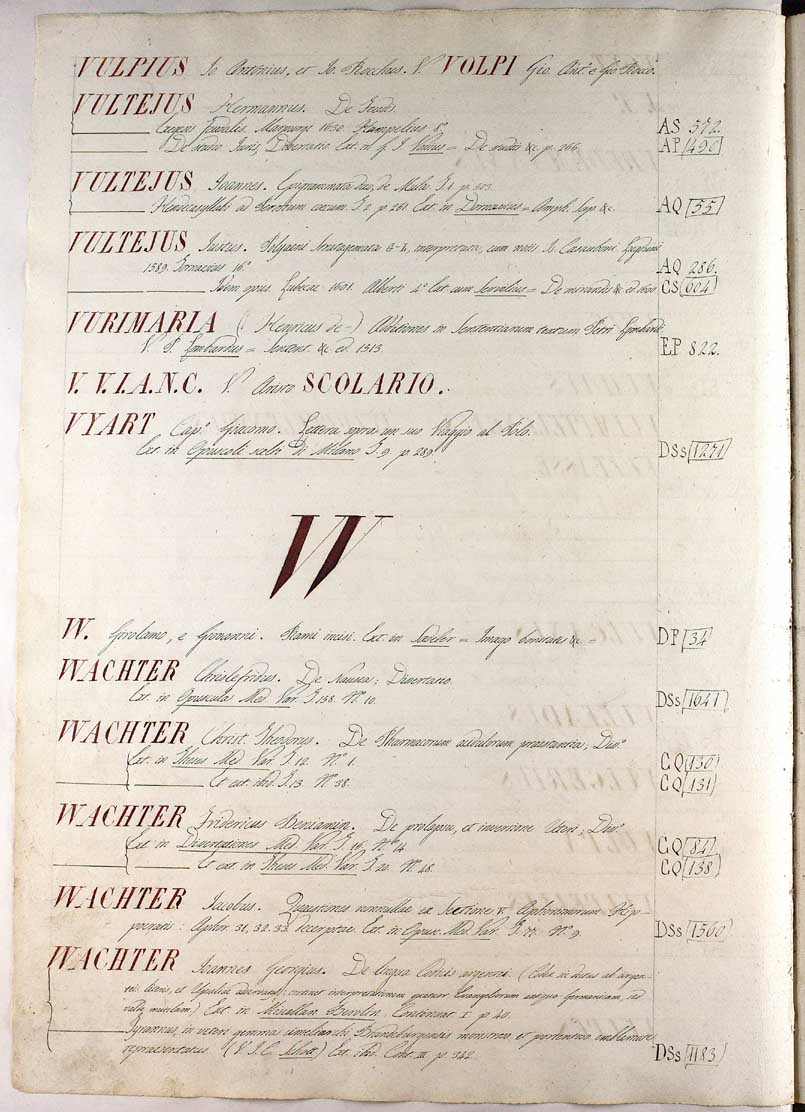 VULPIUS Jo Antonius, et Jo. Rocchus. V. VOLPI Gio. Ant.º e Gio Rocco.
VULTEJUS Hermannus. De Feudis
Marpurgi 1630. Hampelius 8º AS 572.
De Juris, Ext. n. f. J. = De &c p. 266. AP 490
VULTEJUS Joannes. Epigrammata duo, de Mula. T. 1. p.
Hendecasyllabi ad T. 2. p. 261. Ext. in Dornavius = Amph. Sap. &c. AQ 55
VULTEJUS Justus. Polyaeni Stratagemata G-L, interpretatus, cum notis Is. Casauboni. Lugduni
1589. Tornaesius 16º AQ 286.
Idem opus. Lubecae 1601. Alberti 4º Ext. cum = De mirandis &c. ed. 1601 CS 604
VURIMARIA (Henricus de-) Additiones in Sententiarum textum Petri Lombardi
V. P. Lombardus = Sentent. &c ed. 1513. EP 822.
V. V. I. A. N. C. V. SCOLARIO.
VYART Cap.º Giacomo. Lettera sopra un suo Viaggio al Polo.
Ext. in. Opuscoli scelti di Milano T. 9. p. 289. DSs 1271
W
W. Girolamo, e Giovanni. Rami incisi. Ext. in Sadeler = Imago bonitatis &c = DP 34
WACHTER Christfridus. De Nausea; Dissertatio.
Ext. in Opuscula Med. Var. T. 138. Nº 10. DSs 1641
WACHTER Christ. Theodorus. De Pharmacorum acidulorum praestantia; Diss.º
Ext. in Theses Med. Var. T. 12. Nº 1. CQ 130
Et ext. ibid. T. 13. Nº 38. CQ 131
WACHTER Fridericus Beniamin. De prolapsu, et inversione Uteri; Diss.º
Ext. in Dissertationes Med. Var. T. 16. Nº 4. CQ 84
Et ext. in Theses Med. Var. T. 20. Nº 48. CQ 138
WACHTER Jacobus. Quaestiones nonnullae ex Sectione V. Aphorismorum Hip-
pocratis: Aphor. 31, 32. 33. decerptae. Ext. in Opusc. Med. Var. T. 77. Nº 9. DSs 1560
WACHTER Joannes Georgius. De lingua Codicis argentei. (Codex is dictus ab argen-
teis literis, et Upsaliae adservatus, continet interpretationem quatuor Evangeliorum antiquo Germaniam, sed
valde mutilam) Ext. in Miscellan. Berolin. Continuat. I. p. 40.
Tyrannus, in vetere gemma cimeliarchii Brandeburgensis monstroso, et portentoso emblemate
repraesentatus. (V. J. C. Schott) Ext. ibid. Cont. III. p. 342. DSs 1183